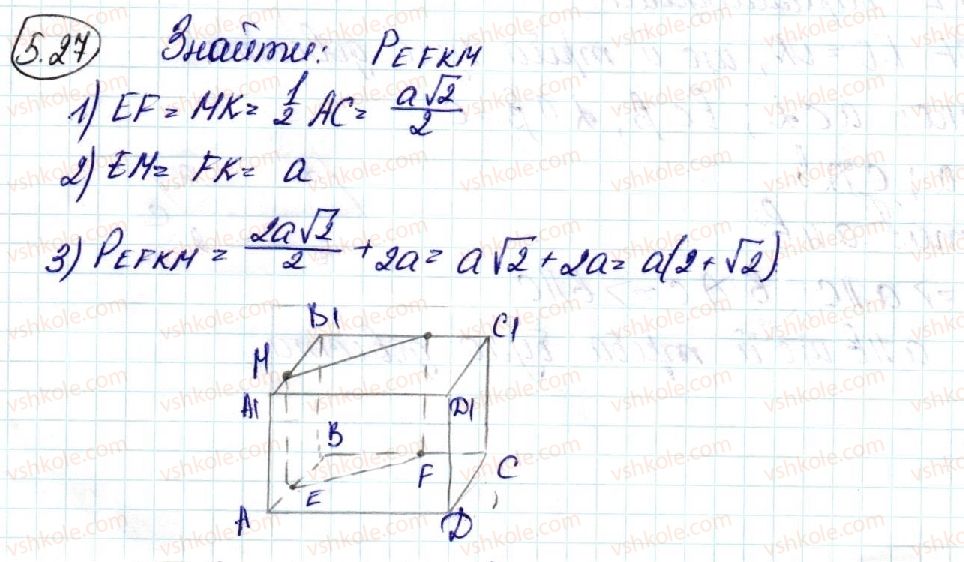 5.27 Знайти: PEFKM
1) EF = MK = 1/2 AC = a√2/2
2) EM = FK = a
3) PEFKM = 2a√2/2 + 2a = a√2 + 2a = a(2+√2)
B1
C1
M
A1
D1
B
F
C
E
A
D
vshkole.com